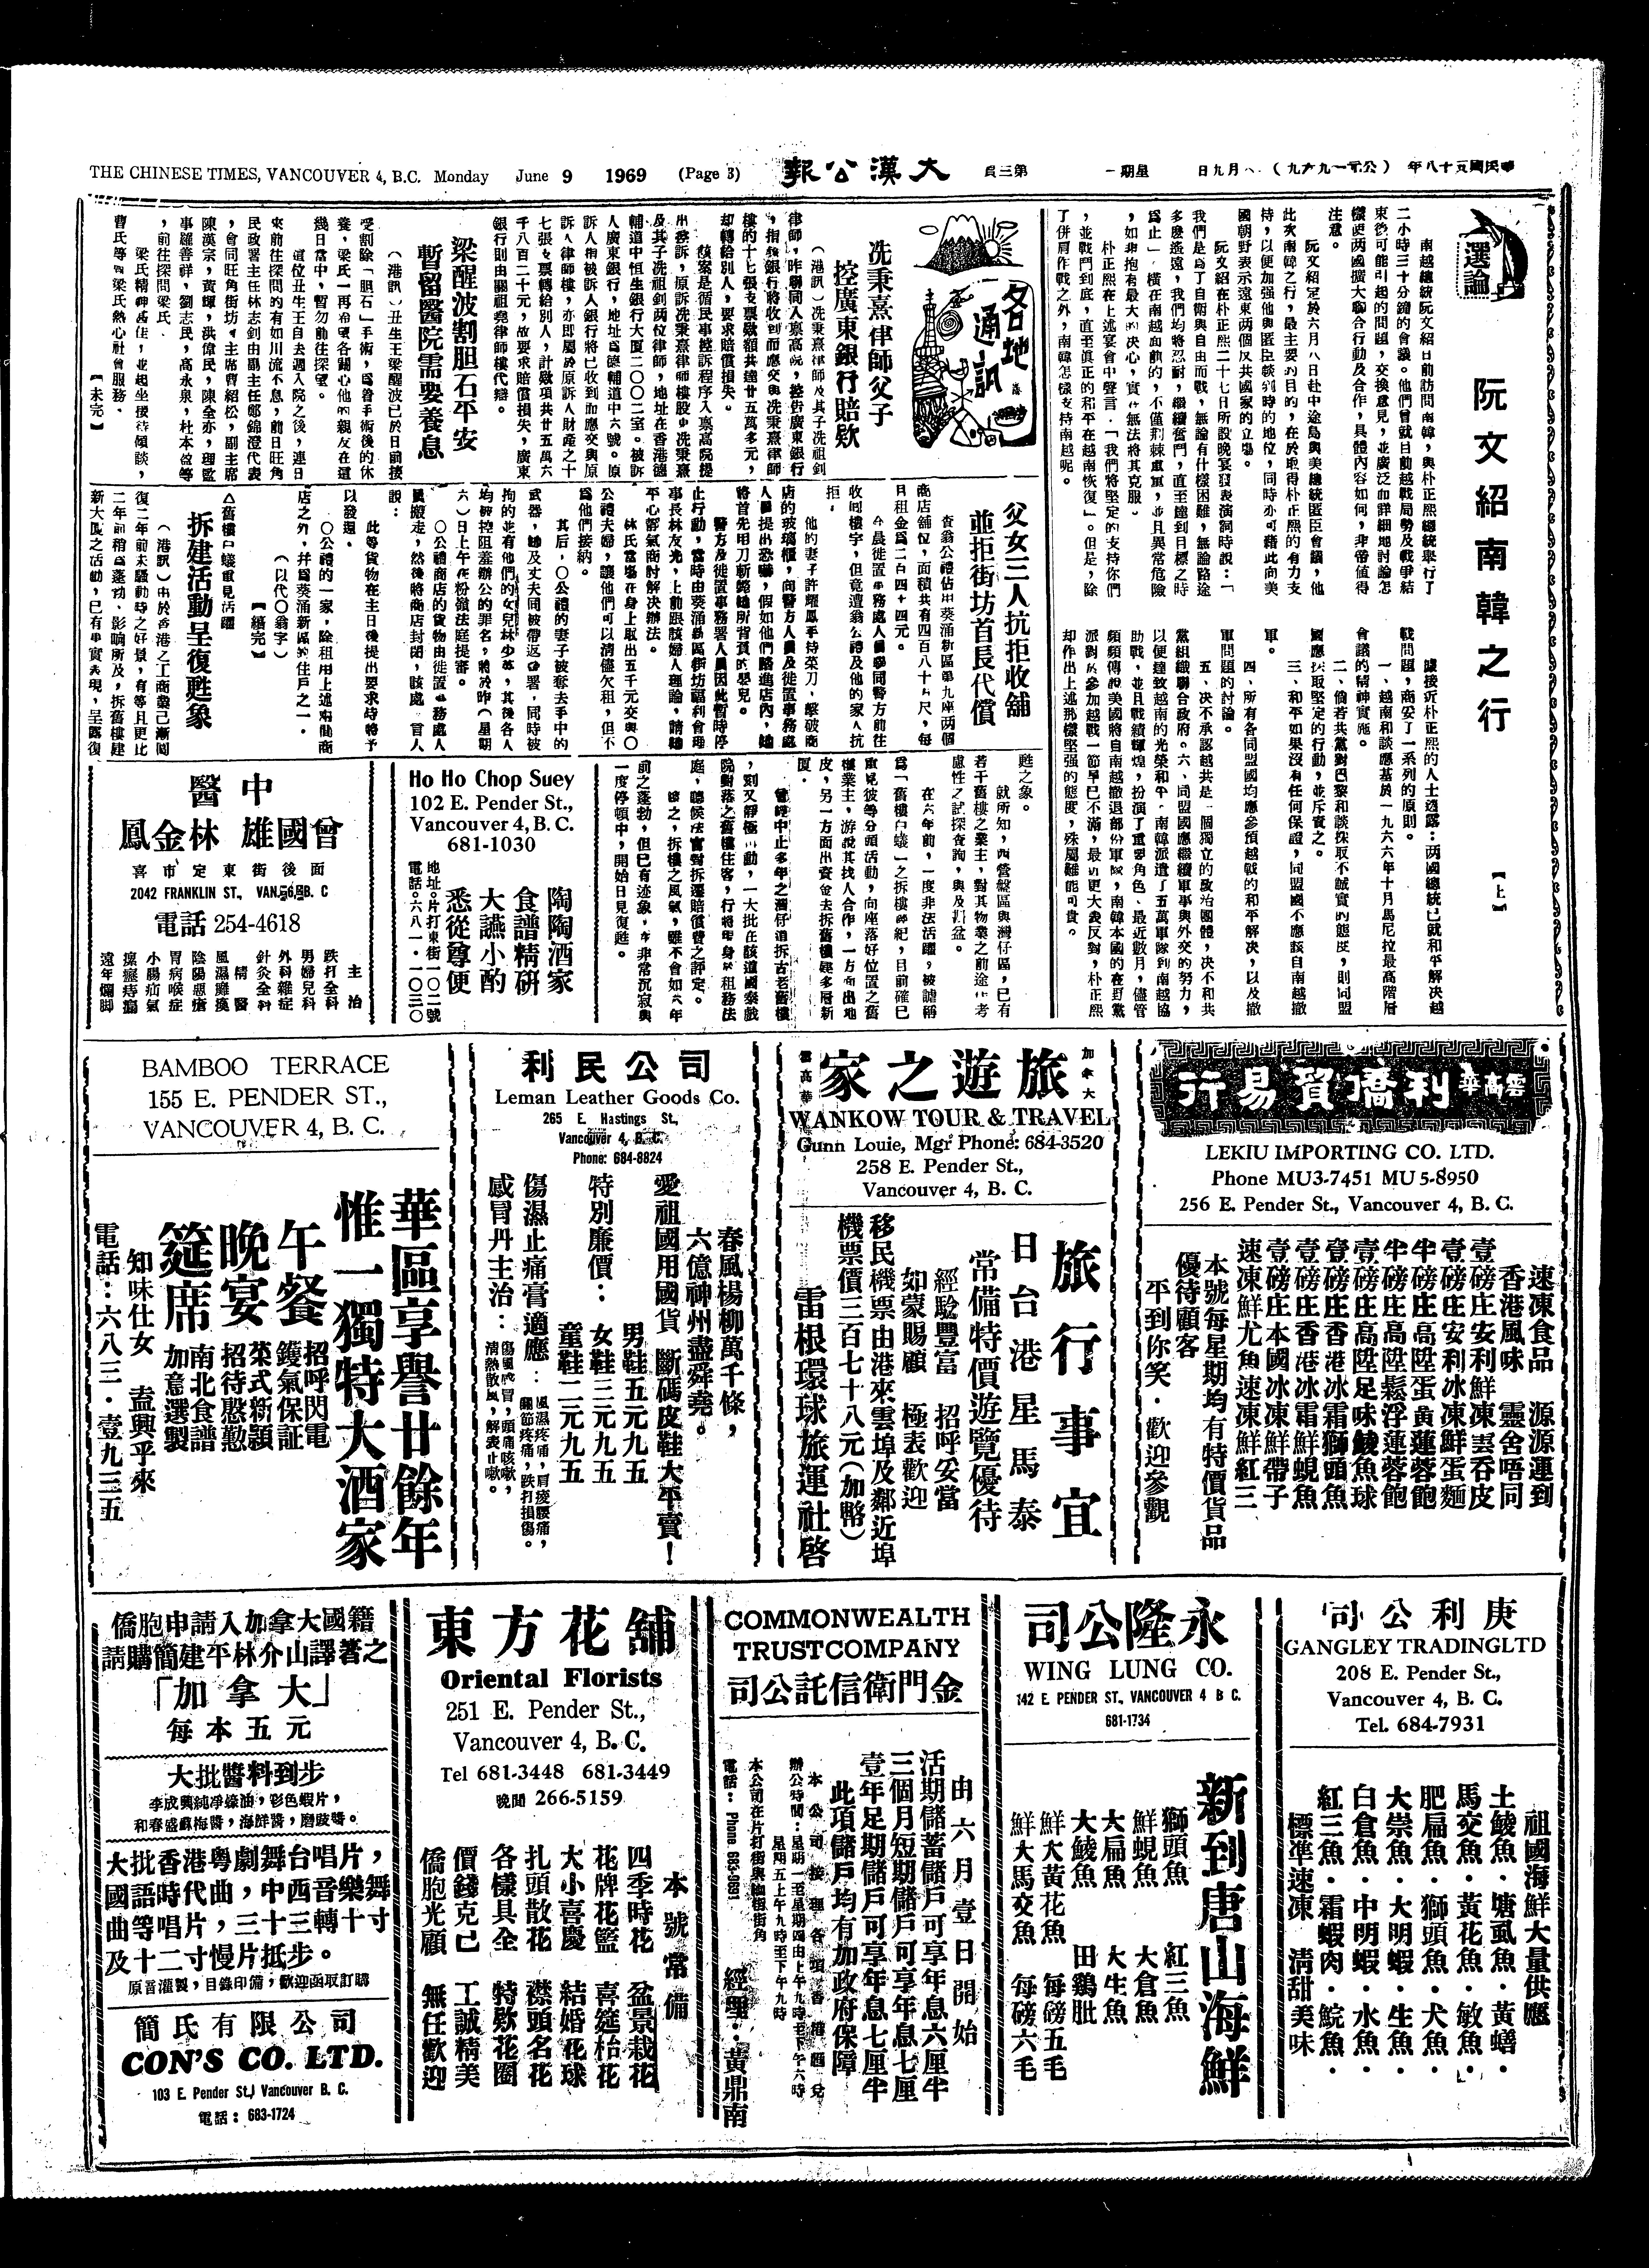 THE CHINESE TIMES, VANCOUVER 4, B.C. Monday June 9 1969 (Page 3)
大漢公報
第三頁
星期一
選論
阮文紹南韓之行
【上】
南越總統阮文紹日前訪問南韓，與朴正熙總統舉行了
二小時三十分鐘的會議。他們曾就目前越戰局勢及戰爭結
束後可能引起的問題，交換意見，並廣泛而詳細地討論怎
樣使兩國擴大聯合行動及合作，具體內容如何，非常值得
注意。
阮文紹定於六月八日赴中途島與美總統匿臣會議，他
此次南韓之行，最主要的目的，在於取得朴正熙的有力支
持，以便加强他與匿臣談判時的地位，同時亦可藉此向美
國朝野表示遠東兩個反共國家的立塲。
阮文紹在朴正熙二十七日所設晚宴發表演詞時說：「
我們是爲了自衛與自由而戰，無論有什樣困難，無論路途
多麽遙遠，我們均將忍耐，繼續奮鬥，直至達到目標之時
爲止」。橫在南越面前的，不僅荆棘重重，並且異常危險
，如非抱有最大的决心，實在無法將其克服。
朴正熙在上述宴會中聲言：「我們將堅定的支持你們
，並戰鬥到底，直至眞正的和平在越南恢復」。但是，除
了併肩作戰之外，南韓怎樣支持南越呢。
據接近朴正熙的人士透露：兩國總統已就和平解决越
戰問題，商妥了一系列的原則。
一、越南和談應基於一九六六年十月馬尼拉最高階層
會議的精神實施。
二、倘若共黨對巴黎和談採取不誠實的態度，則同盟
國應採取堅定的行動，並斥責之。
三、和平如果沒有任何保證，同盟國不應該自南越撤
軍。
四、所有各同盟國均應參預越戰的和平解决，以及撤
軍問題的討論。
五、决不承認越共是一個獨立的政治團體，决不和共
黨組織聯合政府。六、同盟國應繼續軍事與外交的努力，
以便達致越南的光榮和平。南韓派遣了五萬軍隊到南越協
助戰，並且戰績輝煌，扮演了重要角色、最近數月，儘管
頻頻傳說美國將自南越撤退部份軍隊，南韓本國的在野黨
派對於參加越戰一節早已不滿，最近更大表反對，朴正熙
却作出上述那樣堅强的態度，殊屬難能可貴。
各地通訊
冼秉熹律師父子
控廣東銀行賠欵
（港訊）冼秉熹律師及其子冼祖釗
律師，昨聯同入禀高院，控告廣東銀行
，指該銀行將收到而應交與冼秉熹律師
樓的十七張支票欵額共達廿五萬多元，
却轉給別人，要求賠償損失。
該案是循民事控訴程序入禀高院提
出控訴，原訴冼秉熹律師樓股東冼秉熹
及其子冼祖釗两位律師，地址在香港德
輔道中恒生銀行大厦二〇〇二室。被訴
人廣東銀行，地址在德輔道中六號。原
訴人指被訴人銀行將已收到而應交與原
訴人律師樓，亦即屬於原訴人財產之十
七張支票轉給別人，計欵項共廿五萬六
千八百二十元，故要求賠償損失，廣東
銀行則由關祖堯律師樓代辯。
梁醒波割胆石平安
暫留醫院需要養息
（港訊）丑生王梁醒波已於日前接
受割除「胆石」手術，爲着手術後的休
養，梁氏一再希望各關心他的親友在這
幾日當中，暫勿前往探望。
這位丑生王自去週入院之後，連日
來前往探問的有如川流不息，前日旺角
民政署主任林志釗由副主任鄭錦澄代表
，會同旺角街坊會主席曹紹松，副主席
陳漢宗，黃輝，洪偉民，陳全亦，理監
事羅善祥，劉志民，高永泉，杜本盈等
，前往探問梁氏。
梁氏精神甚佳，並起坐接待傾談，
曹氏等謂梁氏熱心社會服務。
【未完】
父女三人抗拒收舖
並拒街坊首長代償
查翁公禮佔用葵涌新區第九座两個
商店舖位，面積共有四百八十方尺，每
月租金爲二百四十四元。
今晨徙置事務處人員聯同警方前往
收回樓宇，但竟遭翁公禮及他的家人抗
拒。
他的妻子許耀鳳手持菜刀，擊破商
店的玻璃櫃，向警方人員及徙置事務處
人員提出恐嚇，假如他們踏進店內，她
將首先用刀斬斃她所背負的嬰兒。
警方及徙置事務署人員因此暫時停
止行動，當時由葵涌新區街坊福利會理
事長林友光，上前跟該婦人理論，請她
平心靜氣商討解决辦法。
林氏當塲在身上取出五千元交與〇
公禮夫婦，讓他們可以清償欠租，但不
爲他們接納。
其后，〇公禮的妻子被奪去手中的
武器，她及丈夫同被帶返警署，同時被
拘的並有他們的女兒林少英，其後各人
均被控阻差辦公的罪名，將於昨（星期
六）日上午在粉嶺法庭提審。
〇公禮商店的貨物由徙置事務處人
員搬走，然後將商店封閉，該處發言人
說：
此等貨物在主日後提出要求時將予
以發還。
〇公禮的一家，除租用上述兩間商
店之外，幷爲葵涌新區的住戶之一。
（以代〇翁字）
【續完】
△舊樓白蟻重見活躍
拆建活動呈復甦象
（港訊）由於香港之工商業己漸囘
復二年前未騷動時之好景，有等且更比
二年前稍爲蓬勃，影响所及，拆舊樓建
新大厦之活動，已有事實表現，呈露復
甦之象。
就所知，西營盤區與灣仔區，已有
若干舊樓之業主，對其物業之前途作考
慮性之試探查詢，與及勘盆。
在六年前，一度非法活躍，被謔稱
爲「舊樓白蟻」之拆樓經紀，日前確已
重見彼等分頭活動，向座落好位置之舊
樓業主，游說其找人合作，一方面出地
皮，另一方面出資金去拆舊樓建多層新
厦。
曾經中止多年之灣仔道拆古老舊樓
，刻又靜極而動，一大批在該道國泰戲
院對落之舊樓住客，行將聘身於租務法
庭，聽候法官對拆遷賠償費之評定。
總之，拆樓之風氣，雖不會如六年
前之蓬勃，但已有迹象，在非常沉寂與
一度停頓中，開始日見復甦。
Ho Ho Chop Suey
102 E. Pender St.,
Vancouver 4, B. C.
681-1030
陶陶酒家
食譜精研
大讌小酌
悉從尊便
地址：片打東街一〇二號
電話：六八一‧一〇三〇
中醫
曾國雄 林金鳳
喜市定東街後面
2042 FRANKLIN ST., VAN. 6, B. C
電話 254-4618
主治
跌打全科
男婦兒科
外科雜症
針灸全科
精醫
風濕癱瘓
陰陽惡瘡
胃病喉症
小腸疝氣
瘰癧痔瘡
遠年爛脚
雲高華利僑貿易行
LEKIU IMPORTING CO. LTD.
Phone MU3-7451 MU 5-8950
256 E. Pender St., Vancouver 4, B. C.
速凍食品 源源運到
香港風味 靈舍唔同
壹磅庄安利鮮凍雲吞皮
壹磅庄安利冰凍鮮蛋麵
半磅庄高陞蛋黃蓮蓉飽
半磅庄高陞鬆浮蓮蓉飽
壹磅庄高陞足味鯪魚球
壹磅庄香港冰霜獅頭魚
壹磅庄香港冰霜鮮蜆魚
壹磅庄本國冰凍鮮帶子
速凍鮮尤魚速凍鮮紅三
本號每星期均有特價貨品
優待顧客
平到你笑‧歡迎參觀
加拿大
雲高華
旅遊之家
WANKOW TOUR & TRAVEL
Gunn Louie, Mgr Phone: 684-3520
258 E. Pender St.,
Vancouver 4, B. C.
旅行事宜
日台港星馬泰
常備特價遊覽優待
經驗豐富 招呼妥當
如蒙賜顧 極表歡迎
移民機票由港來雲埠及鄰近埠
機票價三百七十八元（加幣）
雷根環球旅運社啓
利民公司
Leman Leather Goods Co.
265 E. Hastings St,
Vancouver 4, B. C.
Phone: 684-8824
春風楊柳萬千條，
六億神州盡舜堯。
愛祖國用國貨 斷碼皮鞋大平賣！
特別廉價：
男鞋五元九五
女鞋三元九五
童鞋二元九五
傷濕止痛膏適應：風濕疼痛，肩痠腰痛，關節疼痛，跌打損傷。
感冒丹主治：傷風感冒，頭痛咳嗽，清熱散風，解表止嗽。
BAMBOO TERRACE
155 E. PENDER ST.,
VANCOUVER 4, B. C.
華區享譽廿餘年
惟一獨特大酒家
午餐
招呼閃電
鑊氣保証
晚宴
菜式新穎
招待慇懃
筵席
南北食譜
加意選製
知味仕女 盍興乎來
電話：六八三‧壹九三五
庚利公司
GANGLEY TRADING LTD
208 E. Pender St.,
Vancouver 4, B. C.
Tel. 684-7931
祖國海鮮大量供應
土鯪魚‧塘虱魚‧黃鱔‧
馬交魚‧黃花魚‧敏魚‧
肥扁魚‧獅頭魚‧犬魚‧
大崇魚‧大明蝦‧生魚‧
白倉魚‧中明蝦‧水魚‧
紅三魚‧霜蝦肉‧鯇魚‧
標準速凍 清甜美味
永隆公司
WING LUNG CO.
142 E. PENDER ST., VANCOUVER 4 B C.
681-1734
新到唐山海鮮
獅頭魚 紅三魚
鮮蜆魚 大倉魚
大扁魚 大生魚
大鯪魚 田鷄肶
鮮大黃花魚 每磅五毛
鮮大馬交魚 每磅六毛
COMMONWEALTH
TRUST COMPANY
金門衛信託公司
由六月壹日開始
活期儲蓄儲戶可享年息六厘半
三個月短期儲戶可享年息七厘
壹年足期儲戶可享年息七厘半
此項儲戶均有加政府保障
本公司接理各項香港滙兌
辦公時間：星期一至星期四由上午九時至下午六時
星期五上午九時至下午九時
本公司在片打街與緬街街角
電話：Phone 683-9691
經理‧黃鼎南
東方花舖
Oriental Florists
251 E. Pender St.,
Vancouver 4, B. C.
Tel 681-3448 681-3449
晚間 266-5159
本號常備
四季時花 盆景栽花
花牌花籃 喜筵枱花
大小喜慶 結婚花球
扎頭散花 襟頭名花
各樣具全 特欵花圈
價錢克己 工誠精美
僑胞光顧 無任歡迎
僑胞申請入加拿大國籍
請購簡建平林介山譯著之
「加拿大」
每本五元
大批醬料到步
李成興純凈蠔油，彩色蝦片，
和春盛蘇梅醬，海鮮醬，磨豉醬。
大批香港粤劇舞台唱片，
國語時代曲，中西音樂，舞
曲等唱片，三十三轉十寸
及十二寸慢片抵步。
原音灌製，目錄印備，歡迎函取訂購
簡氏有限公司
CON'S CO. LTD.
103 E. Pender St., Vancouver B. C.
電話：683-1724